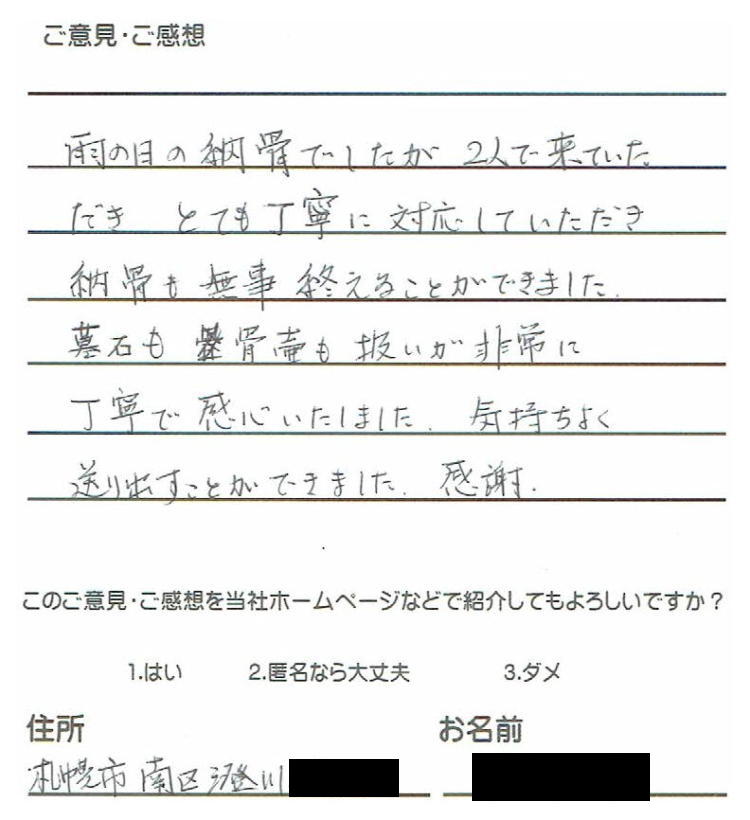 ご意見・ご感想
雨の日の納骨でしたが 2人で来ていた
だき とても丁寧に対応していただき
納骨も無事終えることができました.
墓石も 骨壷も扱いが非常に
丁寧で感心いたしました. 気持ちよく
送り出すことができました. 感謝.
このご意見・ご感想を当社ホームページなどで紹介してもよろしいですか？
1.はい 2.匿名なら大丈夫 3.ダメ
住所 お名前
札幌市南区澄川